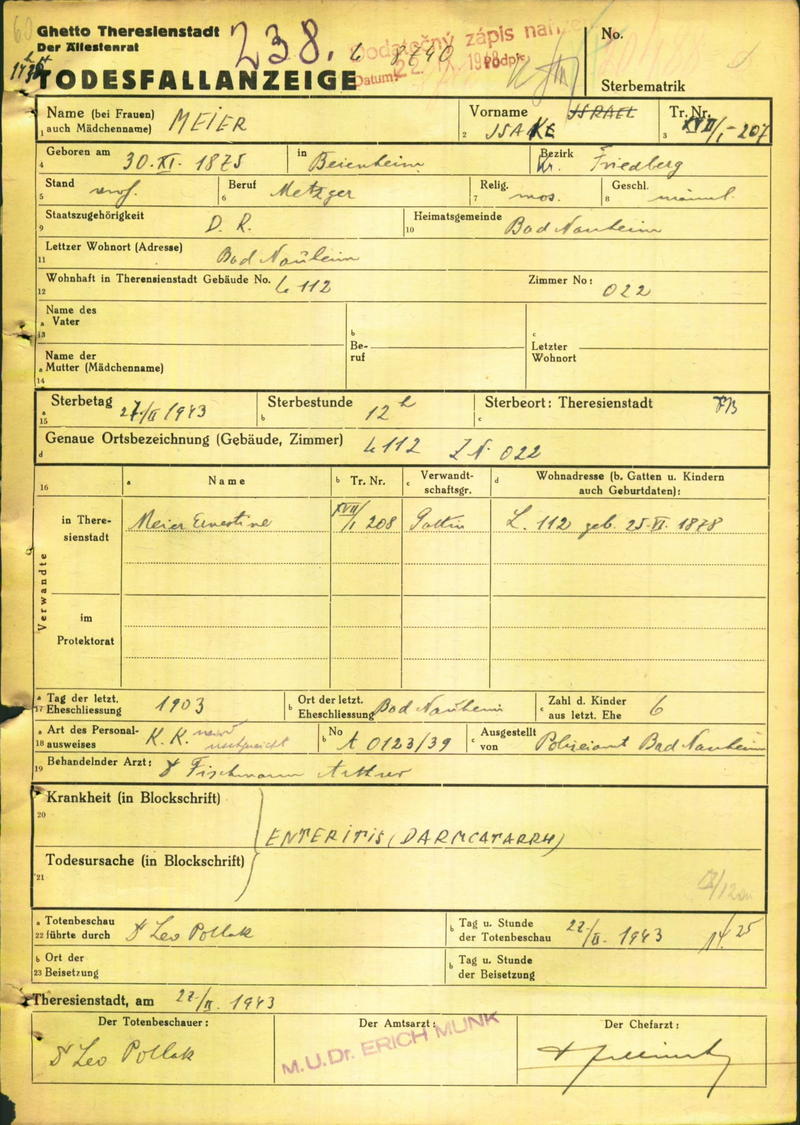 Ghetto Theresienstadt
Der Ältestenrat
238.
Dodatečný zápis
Datum:
Podpis
No.
TODESFALLANZEIGE
Sterbematrik
Name (bei Frauen) MEIER
1 auch Mädchenname)
Vorname ISRAEL
2 ISAKE
Tr. Nr.
3 XVII/1-207
4 Geboren am 30. XI. 1875 in Beienheim Bezirk Kr. Friedberg
5 Stand verh. 6 Beruf Metzger 7 Relig. mos. 8 Geschl. männl.
9 Staatszugehörigkeit D. R. 10 Heimatsgemeinde Bad Nauheim
11 Lettzer Wohnort (Adresse) Bad Nauheim
12 Wohnhaft in Theresienstadt Gebäude No. L 112 Zimmer No: 022
Name des
a Vater
13
b Be-
ruf
c Letzter
Wohnort
Name der
a Mutter (Mädchenname)
14
a 15 Sterbetag /II 1943 b Sterbestunde 12 h c Sterbeort: Theresienstadt
d Genaue Ortsbezeichnung (Gebäude, Zimmer) L 112 Z N. 022
16 a Name b Tr. Nr. c Verwandt-
schaftsgr. d Wohnadresse (b. Gatten u. Kindern
auch Geburtdaten):
Verwandte
in There-
sienstadt
Meier Ernestine XVII/1 208 Gattin L. 112 geb. 25. VI. 1878
im
Protektorat
a Tag der letzt.
17 Eheschliessung 1903
b Ort der letzt.
Eheschliessung Bad Nauheim
c Zahl d. Kinder
aus letzt. Ehe 6
a Art des Personal-
18 ausweises K. K.
b No A 0123/39
c Ausgestellt
von Polizeiamt Bad Nauheim
19 Behandelnder Arzt: Dr Fischmann Arthur
Krankheit (in Blockschrift)
20
ENTERITIS (DARMCATARRH)
Todesursache (in Blockschrift)
21
a Totenbeschau
22 führte durch Dr Leo Pollak
b Tag u. Stunde
der Totenbeschau /II. 1943 14.25
b Ort der
23 Beisetzung
b Tag u. Stunde
der Beisetzung
Theresienstadt, am /II. 1943
Der Totenbeschauer:
Der Amtsarzt:
Der Chefarzt:
Dr Leo Pollak
M.U.Dr. ERICH MUNK